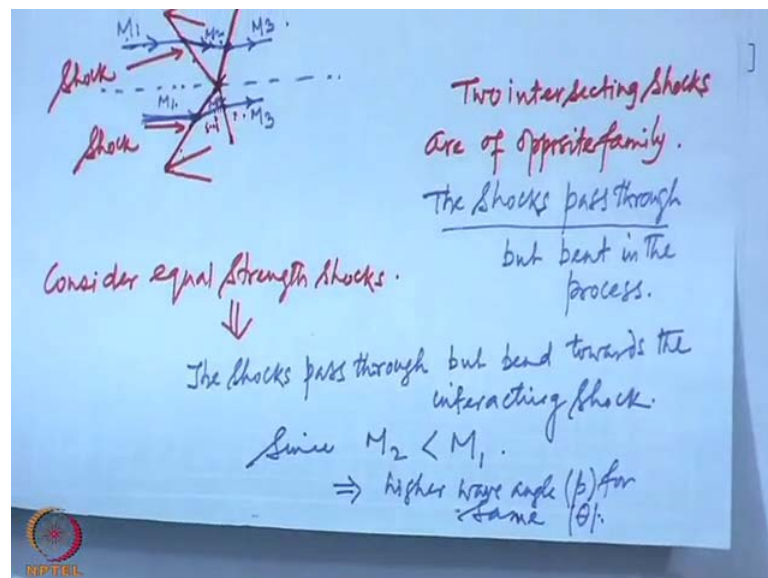 M1 M2 M3
Shock
M1 M3
Shock
]
Two intersecting shocks
are of opposite family.
The shocks pass through
but bent in the
process.
Consider equal strength shocks.
⇓
The shocks pass through but bend towards the
interacting shock.
Since M2 < M1.
⇒ higher wave angle (β) for
same |θ|.
NPTEL